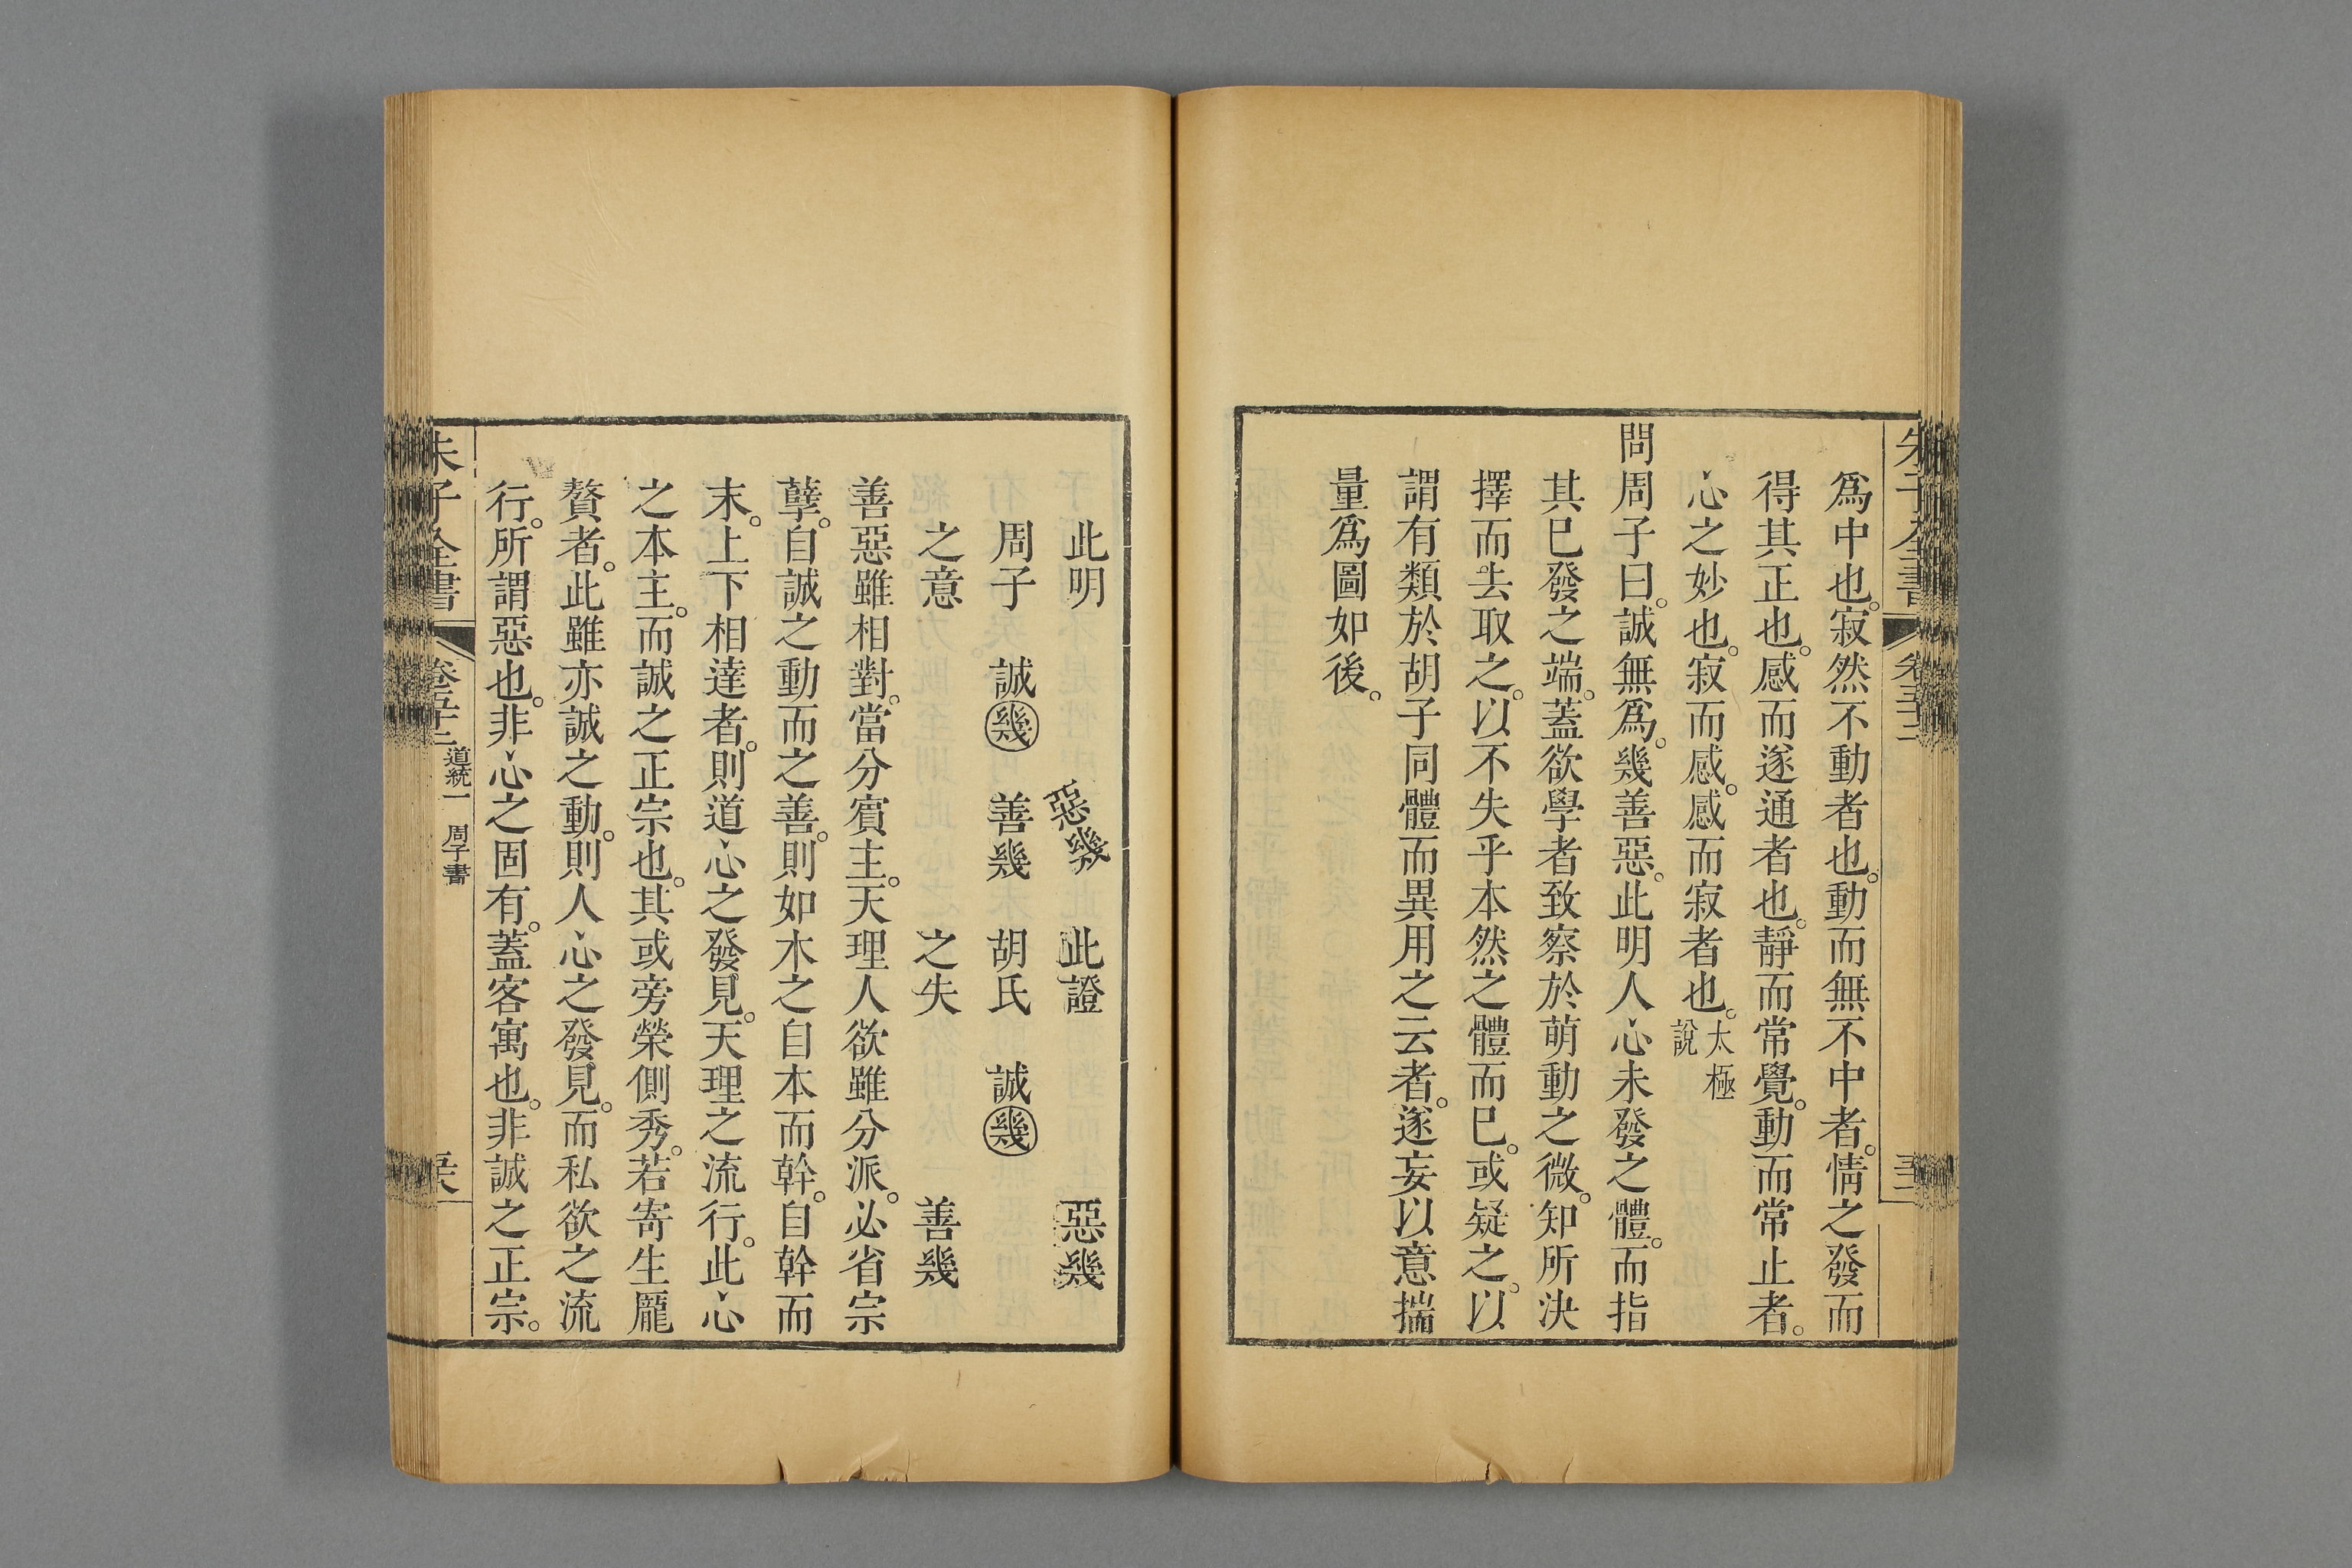 朱子全書 卷五十二
爲中也。寂然不動者也。動而無不中者。情之發而
得其正也。感而遂通者也。靜而常覺。動而常止者。
心之妙也。寂而感。感而寂者也。太極說
問周子曰。誠無爲。幾善惡。此明人心未發之體。而指
其已發之端。蓋欲學者致察於萌動之微。知所決
擇而去取之。以不失乎本然之體而已。或疑之。以
謂有類於胡子同體而異用之云者。遂妄以意揣
量爲圖如後。
此明 惡幾 此證 惡幾
周子 誠 幾 善幾 胡氏 誠 幾
之意 之失 善幾
善惡雖相對。當分賓主。天理人欲雖分派。必省宗
孽。自誠之動而之善。則如木之自本而幹。自幹而
末。上下相達者。則道心之發見。天理之流行。此心
之本主。而誠之正宗也。其或旁榮側秀。若寄生龐
贅者。此雖亦誠之動。則人心之發見。而私欲之流
行。所謂惡也。非心之固有。蓋客寓也。非誠之正宗。
朱子全書 卷五十二 道統一 周子書